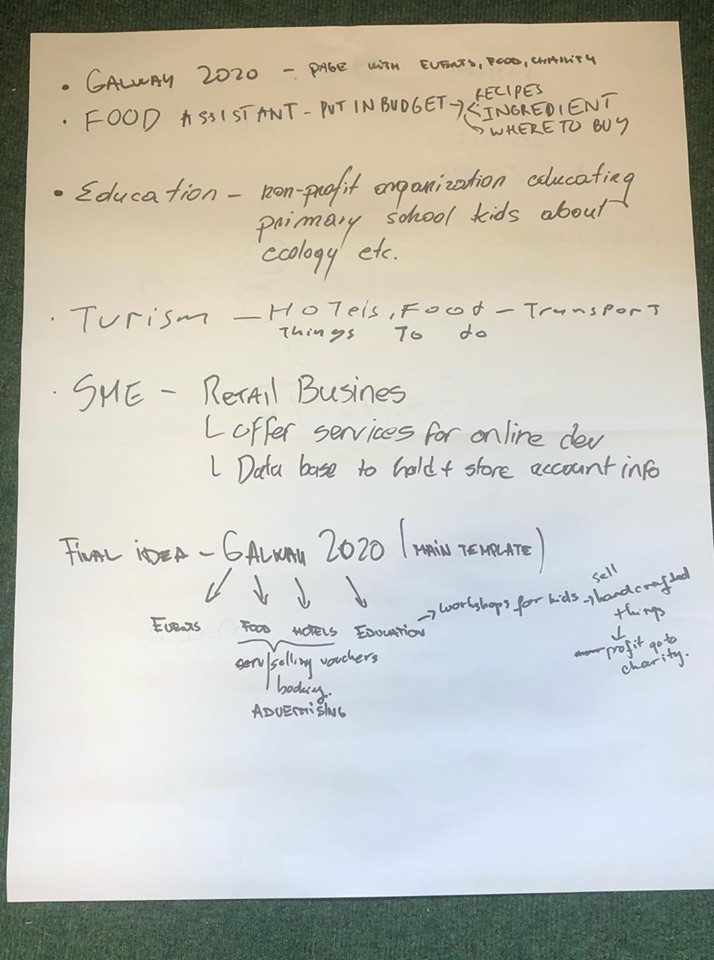 • GALWAY 2020 - PAGE WITH EVENTS, FOOD, CHARITY
• FOOD ASSISTANT - PUT IN BUDGET → RECIPES
INGREDIENT
WHERE TO BUY
• Education - non-profit organization educating
primary school kids about
ecology etc.
• Turism - Hotels, Food - Transport
Things To do
• SME - Retail Busines
└ offer services for online dev
└ Data base to hold + store account info
FINAL IDEA - GALWAY 2020 (MAIN TEMPLATE)
EVENTS FOOD HOTELS EDUCATION → workshops for kids → sell
handcrafted
things
↓
profit go to
charity.
serv/selling vouchers
booking.
ADVERTISING